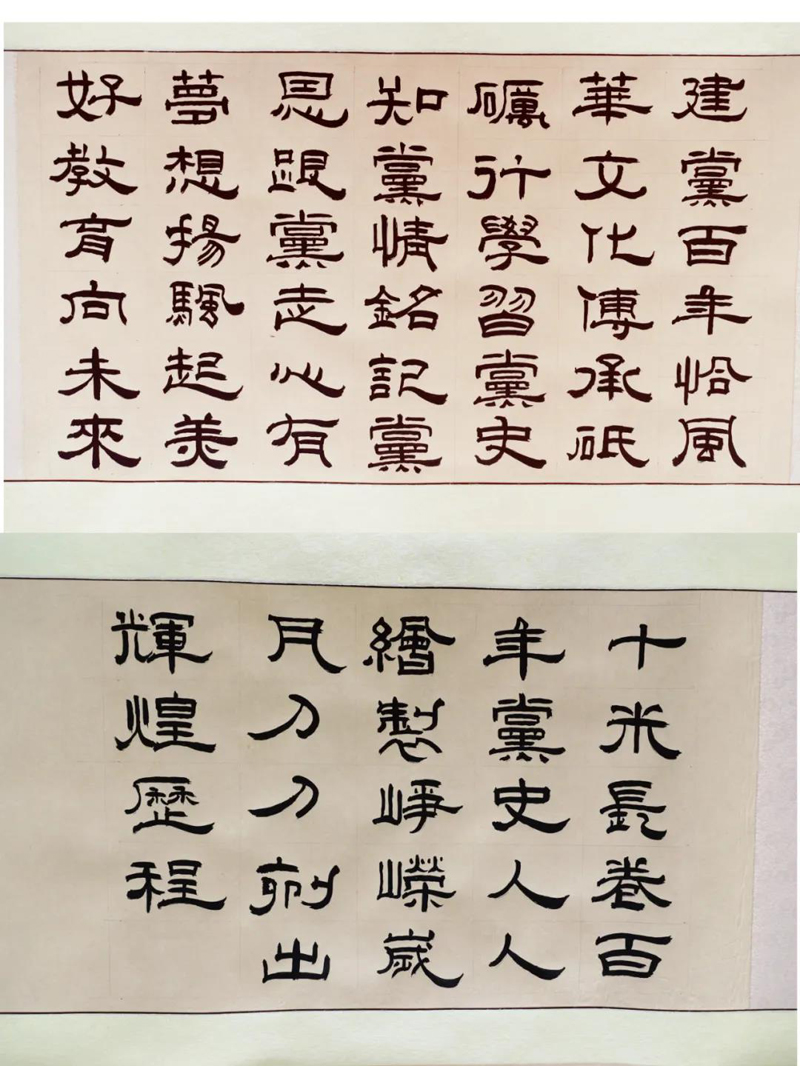 建黨百年恰風
華文化傳承砥
礪行學習黨史
知黨情銘記黨
恩跟黨走心有
夢想揚颿起美
好教育向未來
十米長卷百
年黨史人人
繪製崢嶸歲
月刀刀刻出
輝煌歷程